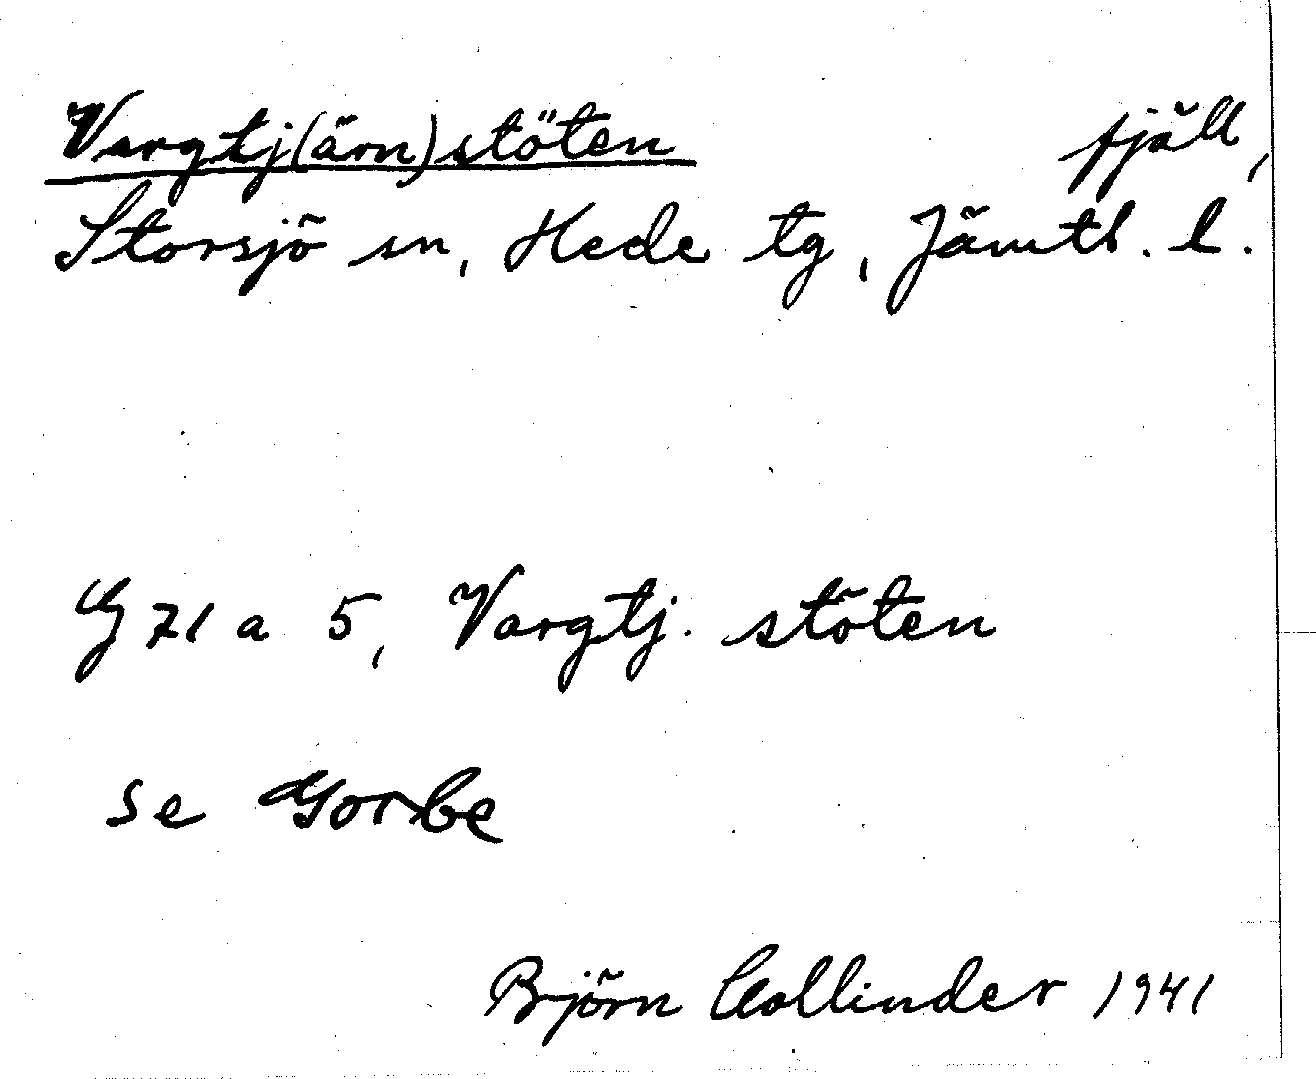 Vargtj(ärn)stöten fjäll,
Storsjö sn, Hede tg, Jämtl. l.
G 71 a 5, Vargtj. stöten
se Gorbe
Björn Collinder 1941